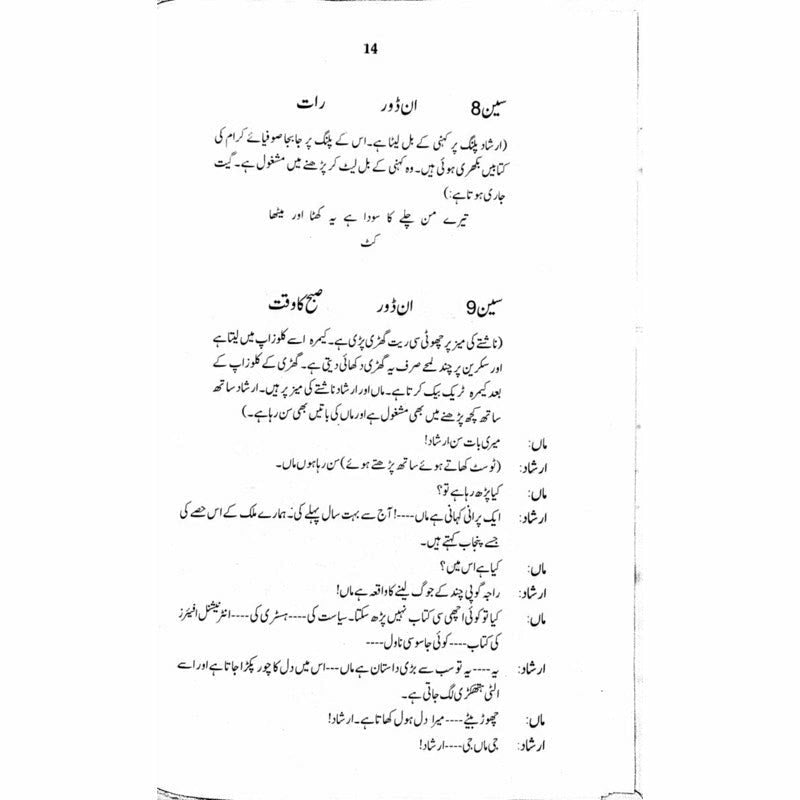 14
سین 8 ان ڈور رات
(ارشاد پلنگ پر کہنی کے بل لیٹا ہے۔ اس کے پلنگ پر جابجا صوفیائے کرام کی
کتابیں بکھری ہوئی ہیں۔ وہ کہنی کے بل لیٹ کر پڑھنے میں مشغول ہے۔ گیت
جاری ہوتا ہے:)
تیرے من چلے کا سودا ہے یہ کھٹا اور میٹھا
کٹ
سین 9 ان ڈور صبح کا وقت
(ناشتے کی میز پر چھوٹی سی ریت گھڑی پڑی ہے۔ کیمرہ اسے کلوزاپ میں لیتا ہے
اور سکرین پر چند لمحے صرف یہ گھڑی دکھائی دیتی ہے۔ گھڑی کے کلوزاپ کے
بعد کیمرہ ٹریک بیک کرتا ہے۔ ماں اور ارشاد ناشتے کی میز پر ہیں۔ ارشاد ساتھ
ساتھ کچھ پڑھنے میں بھی مشغول ہے اور ماں کی باتیں بھی سن رہا ہے۔)
ماں: میری بات سن ارشاد!
ارشاد: (ٹوسٹ کھاتے ہوئے ساتھ پڑھتے ہوئے) سن رہا ہوں ماں۔
ماں: کیا پڑھ رہا ہے تو؟
ارشاد: ایک پرانی کہانی ہے ماں----! آج سے بہت سال پہلے کی۔ ہمارے ملک کے اس حصے کی
جسے پنجاب کہتے ہیں۔
ماں: کیا ہے اس میں؟
ارشاد: راجہ گوپی چند کے جوگ لینے کا واقعہ ہے ماں!
ماں: کیا تو کوئی اچھی سی کتاب نہیں پڑھ سکتا۔ سیاست کی----ہسٹری کی----انٹرنیشنل افیئرز
کی کتاب----کوئی جاسوسی ناول----
ارشاد: یہ----یہ تو سب سے بڑی داستان ہے ماں---اس میں دل کا چور پکڑا جاتا ہے اور اسے
الٹی ہتھکڑی لگ جاتی ہے۔
ماں: چھوڑ بیٹے----میرا دل ہول کھاتا ہے۔ ارشاد!
ارشاد: جی ماں جی----ارشاد!